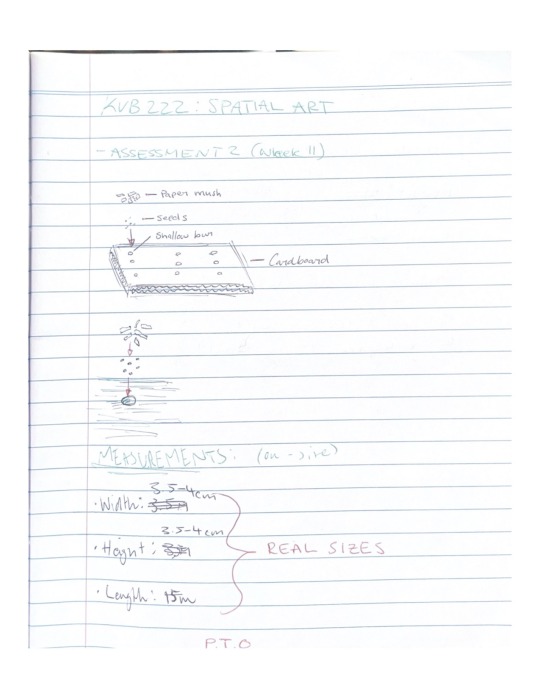 KVB222: SPATIAL ART
- ASSESSMENT 2 (Week 11)
— Paper mush
— seeds
Shallow
— Cardboard
MEASUREMENTS: (on-site)
3.5-4cm
· Width:
3.5-4cm
· Height:
REAL SIZES
· Length: 15m
P.T.O